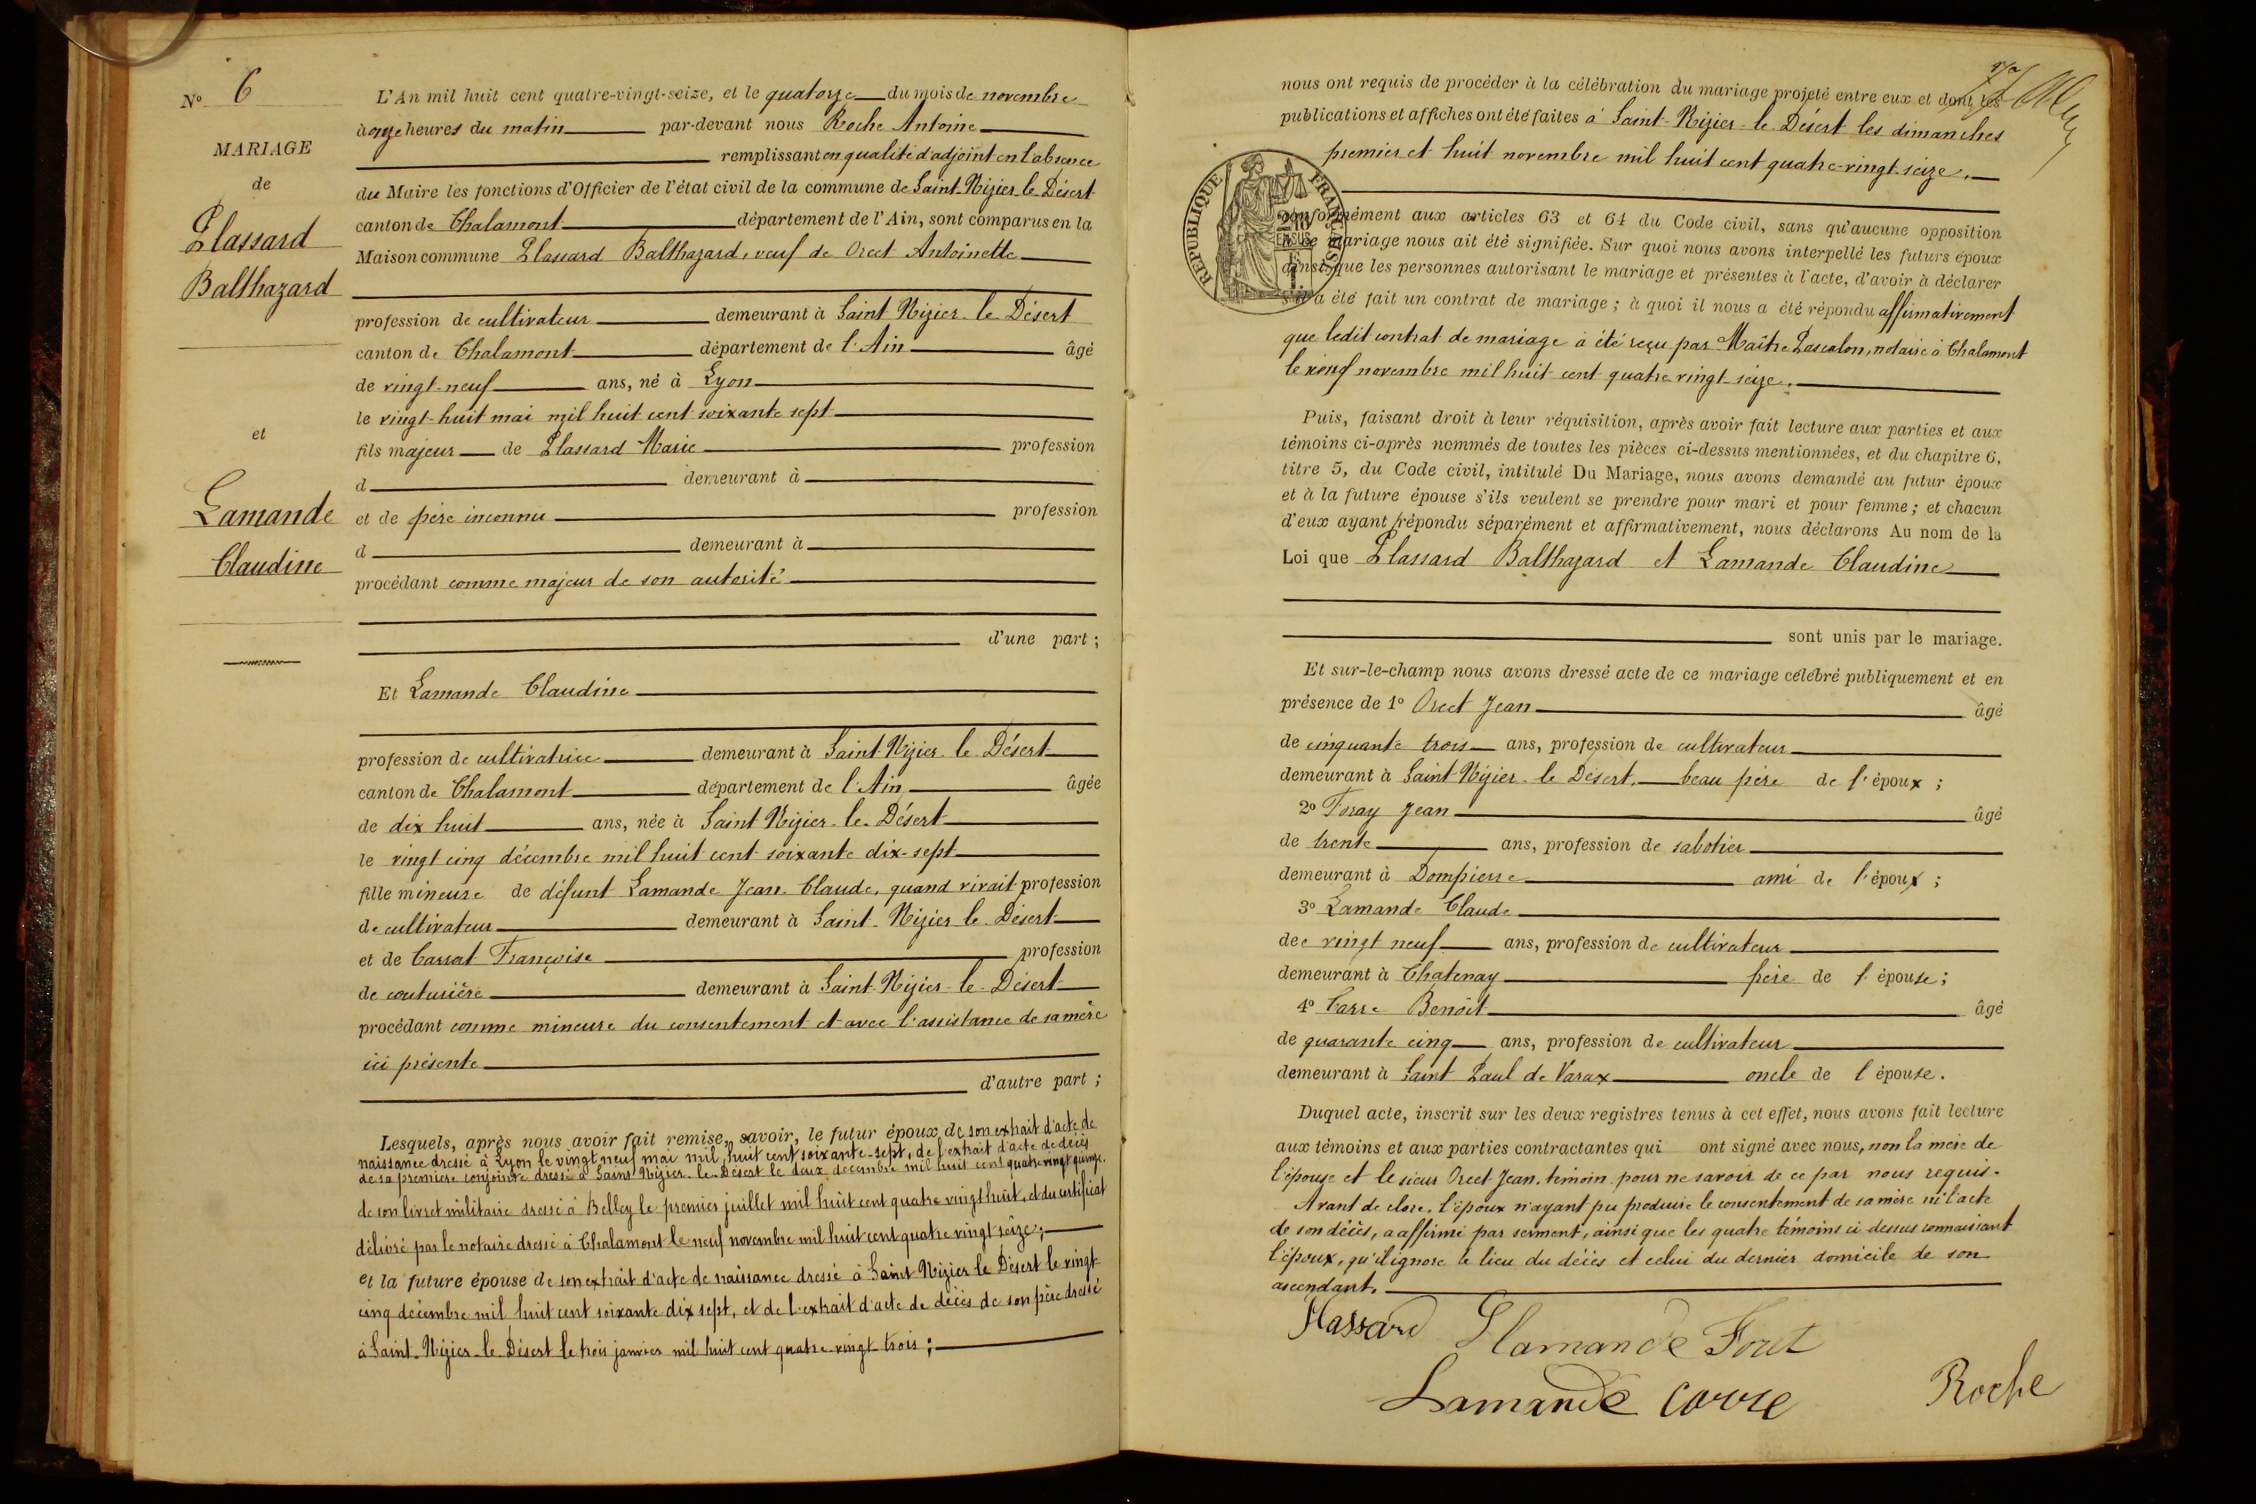 N° 6
MARIAGE
de
Plassard
Balthazard
et
Lamande
Claudine
L'An mil huit cent quatre-vingt-seize, et le quatorze du mois de novembre
à onze heures du matin par-devant nous Roche Antoine
remplissant en qualité d'adjoint en l'absence
du Maire les fonctions d'Officier de l'état civil de la commune de Saint-Nizier-le-Désert
canton de Chalamont département de l'Ain, sont comparus en la
Maison commune Plassard Balthazard, veuf de Orcet Antoinette
profession de cultivateur demeurant à Saint Nizier-le-Désert
canton de Chalamont département de l'Ain âgé
de vingt-neuf ans, né à Lyon
le vingt-huit mai mil huit cent soixante sept
fils majeur de Plassard Marie profession
d demeurant à
et de père inconnu profession
d demeurant à
procédant comme majeur de son autorité
d'une part ;
Et Lamande Claudine
profession de cultivatrice demeurant à Saint-Nizier-le-Désert
canton de Chalamont département de l'Ain âgée
de dix huit ans, née à Saint Nizier-le-Désert
le vingt cinq décembre mil huit cent soixante dix-sept
fille mineure de défunt Lamande Jean-Claude, quand vivait profession
de cultivateur demeurant à Saint-Nizier-le-Désert
et de Carrat Françoise profession
de couturière demeurant à Saint-Nizier-le-Désert
procédant comme mineure du consentement et avec l'assistance de sa mère
ici présente
d'autre part ;
Lesquels, après nous avoir fait remise, savoir, le futur époux de son extrait d'acte de
naissance dressé à Lyon le vingt neuf mai mil huit cent soixante-sept, de l'extrait d'acte de décès
de sa première conjointe dressé à Saint Nizier-le-Désert le deux décembre mil huit cent quatre vingt quinze,
de son livret militaire dressé à Belley le premier juillet mil huit cent quatre vingt huit, et du certificat
délivré par le notaire dressé à Chalamont le neuf novembre mil huit cent quatre vingt seize ;
et la future épouse de son extrait d'acte de naissance dressé à Saint Nizier le Désert le vingt-
cinq décembre mil huit cent soixante dix sept, et de l'extrait d'acte de décès de son père dressé
à Saint-Nizier-le-Désert le trois janvier mil huit cent quatre-vingt-trois ;
nous ont requis de procéder à la célébration du mariage projeté entre eux et dont les
publications et affiches ont été faites à Saint-Nizier-le-Désert les dimanches
premier et huit novembre mil huit cent quatre-vingt-seize,
RÉPUBLIQUE FRANÇAISE
conformément aux articles 63 et 64 du Code civil, sans qu'aucune opposition
à ce mariage nous ait été signifiée. Sur quoi nous avons interpellé les futurs époux
ainsi que les personnes autorisant le mariage et présentes à l'acte, d'avoir à déclarer
s'il a été fait un contrat de mariage ; à quoi il nous a été répondu affirmativement
que ledit contrat de mariage a été reçu par Maître Pascalon, notaire à Chalamont
le neuf novembre mil huit cent quatre vingt-seize.
Puis, faisant droit à leur réquisition, après avoir fait lecture aux parties et aux
témoins ci-après nommés de toutes les pièces ci-dessus mentionnées, et du chapitre 6,
titre 5, du Code civil, intitulé Du Mariage, nous avons demandé au futur époux
et à la future épouse s'ils veulent se prendre pour mari et pour femme ; et chacun
d'eux ayant répondu séparément et affirmativement, nous déclarons Au nom de la
Loi que Plassard Balthazard et Lamande Claudine
sont unis par le mariage.
Et sur-le-champ nous avons dressé acte de ce mariage célébré publiquement et en
présence de 1° Orcet Jean âgé
de cinquante trois ans, profession de cultivateur
demeurant à Saint-Nizier-le Désert, beau père de l'époux ;
2° Foray Jean âgé
de trente ans, profession de sabotier
demeurant à Dompierre ami de l'époux ;
3° Lamande Claude
de vingt neuf ans, profession de cultivateur
demeurant à Chatenay frère de l'épouse ;
4° Carre Benoît âgé
de quarante cinq ans, profession de cultivateur
demeurant à Saint Paul de Varax oncle de l'épouse.
Duquel acte, inscrit sur les deux registres tenus à cet effet, nous avons fait lecture
aux témoins et aux parties contractantes qui ont signé avec nous, non la mère de
l'épouse et le sieur Orcet Jean, témoin pour ne savoir de ce par nous requis.
Avant de clore, l'époux n'ayant pu produire le consentement de sa mère ni l'acte
de son décès, a affirmé par serment, ainsi que les quatre témoins ci dessus connaissant
l'époux, qu'il ignore le lieu du décès et celui du dernier domicile de son
ascendant.
Plassard Lamande
Lamande Carre Roche